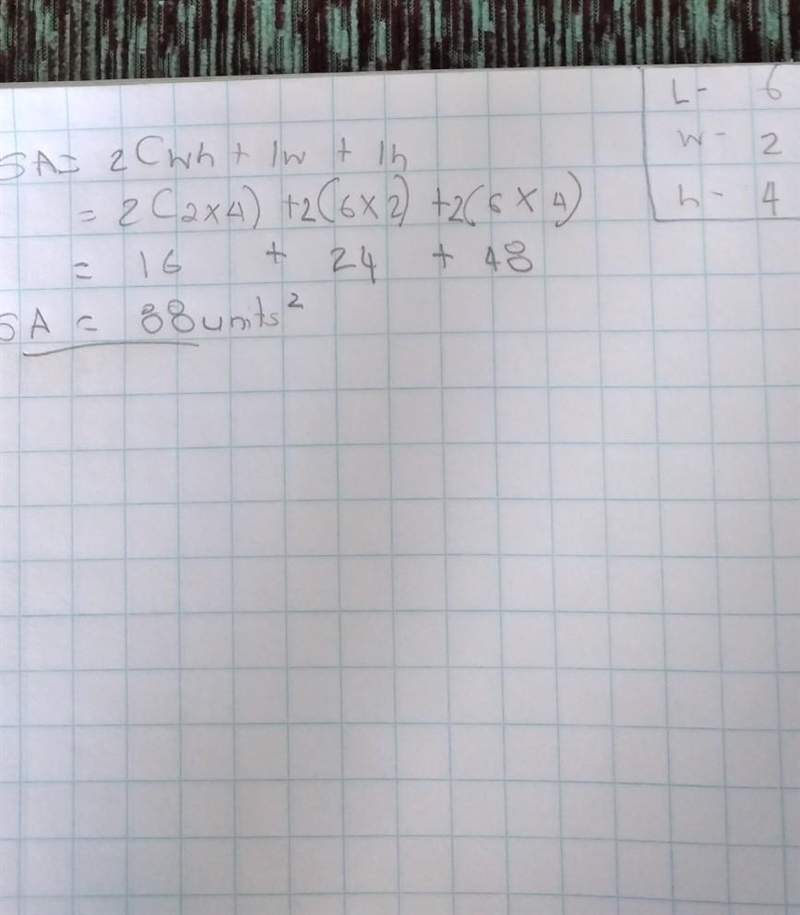 L- 6
w- 2
h- 4
SA= 2(wh + lw + lh
= 2(2×4) +2(6×2) +2(6×4)
= 16 + 24 + 48
SA = 88units²